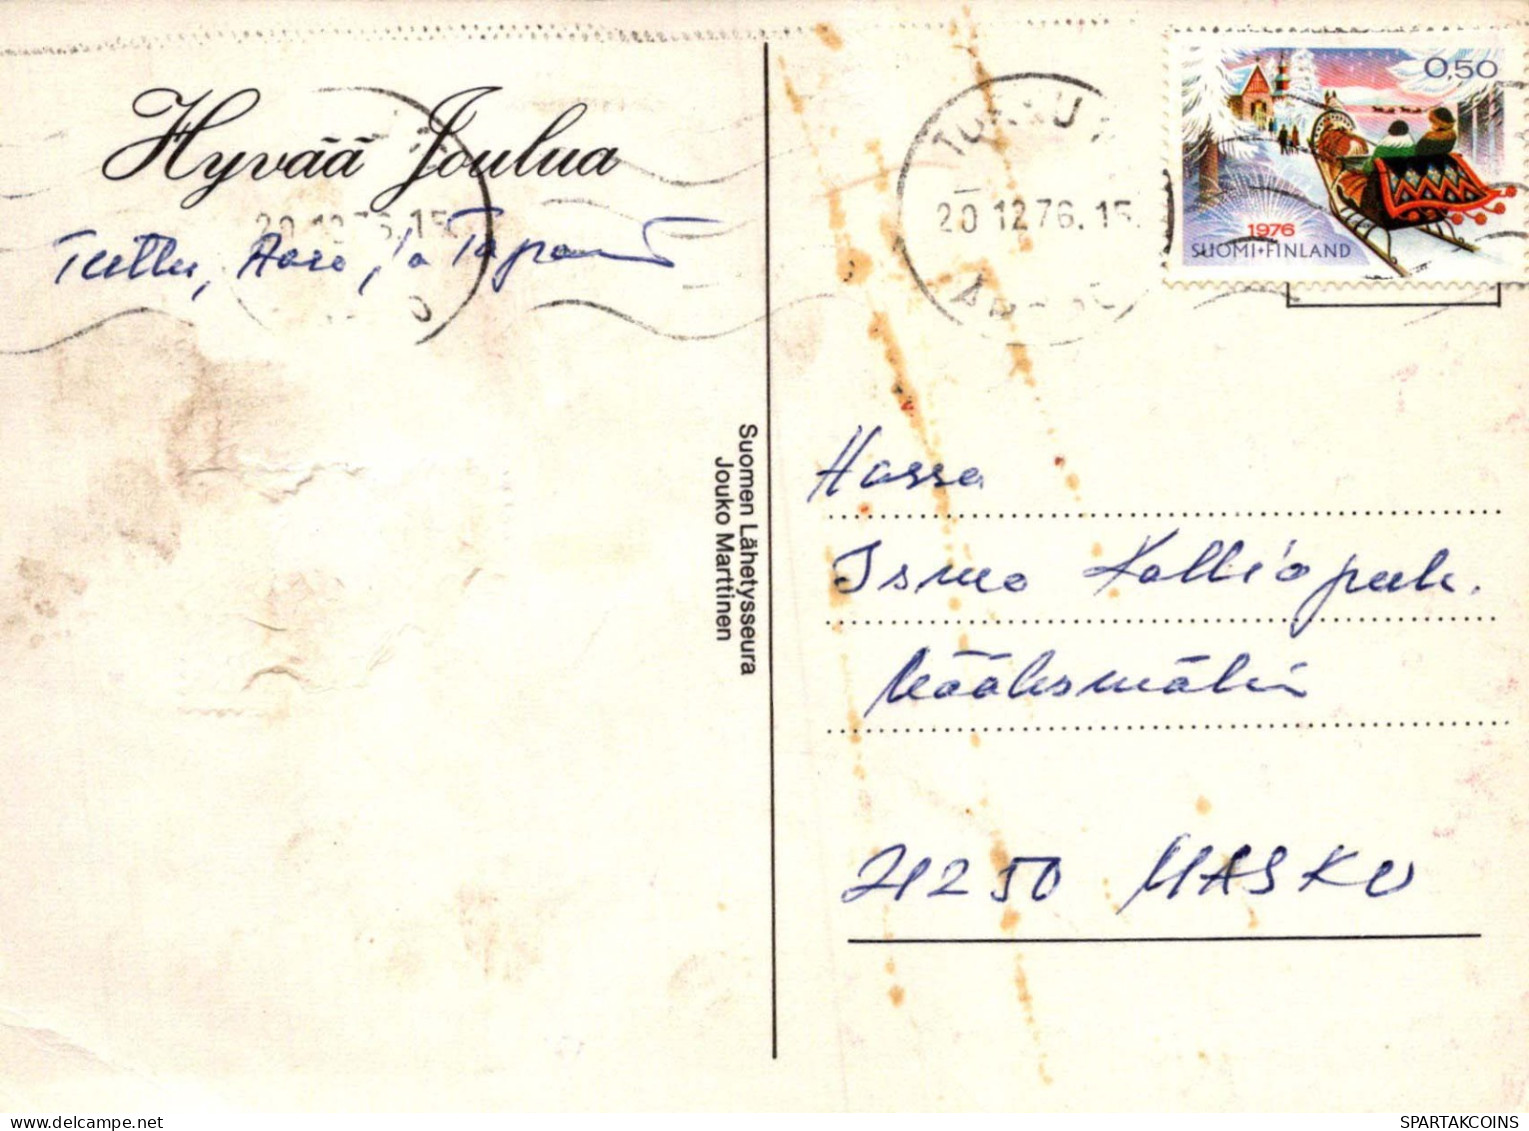 Hyvää Joulua
Terttu, Aaro ja Tapani
Suomen Lähetysseura
Jouko Marttinen
TURKU
20.12.76.15
ÅBO
20.12.76.15
0,50
1976
SUOMI-FINLAND
Ismo Kalliopuh.
21250 MASKU
SPARTAKCOINS